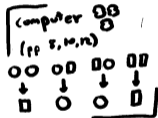 computer
(pp 5, 10, 12)